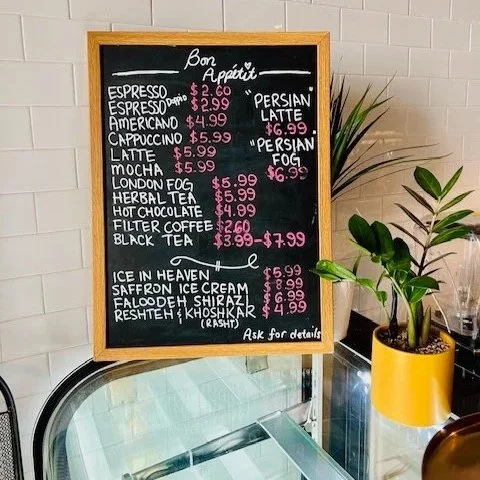 Bon
Appétit
ESPRESSO $2.60
ESPRESSO Dopio $2.99
AMERICANO $4.99
CAPPUCCINO $5.99
LATTE $5.99
MOCHA $5.99
LONDON FOG $5.99
HERBAL TEA $5.99
HOT CHOCOLATE $4.99
FILTER COFFEE $2.60
BLACK TEA $3.99-$7.99
"PERSIAN
LATTE"
$6.99
"PERSIAN
FOG"
$6.99
ICE IN HEAVEN $5.99
SAFFRON ICE CREAM $8.99
FALOODEH SHIRAZI $6.99
RESHTEH & KHOSHKAR $4.99
(RASHT)
Ask for details